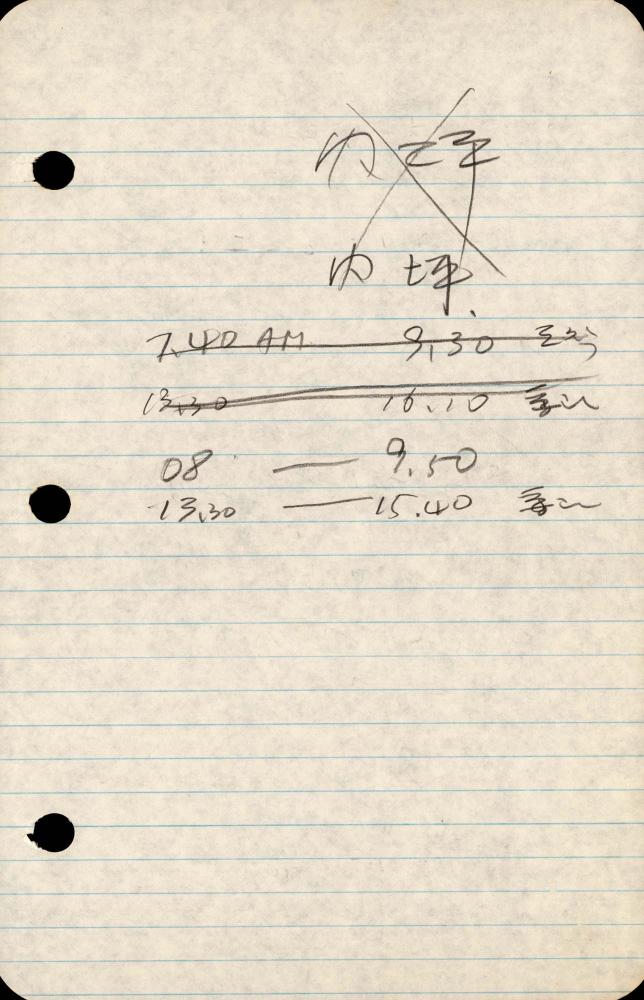 内坪
内坪
7.40 AM 9.30
13.30 16.10
08 — 9.50
13.30 — 15.40